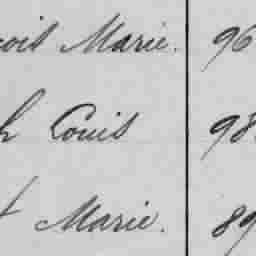 çois Marie. 96
h Louis 98
t Marie. 89